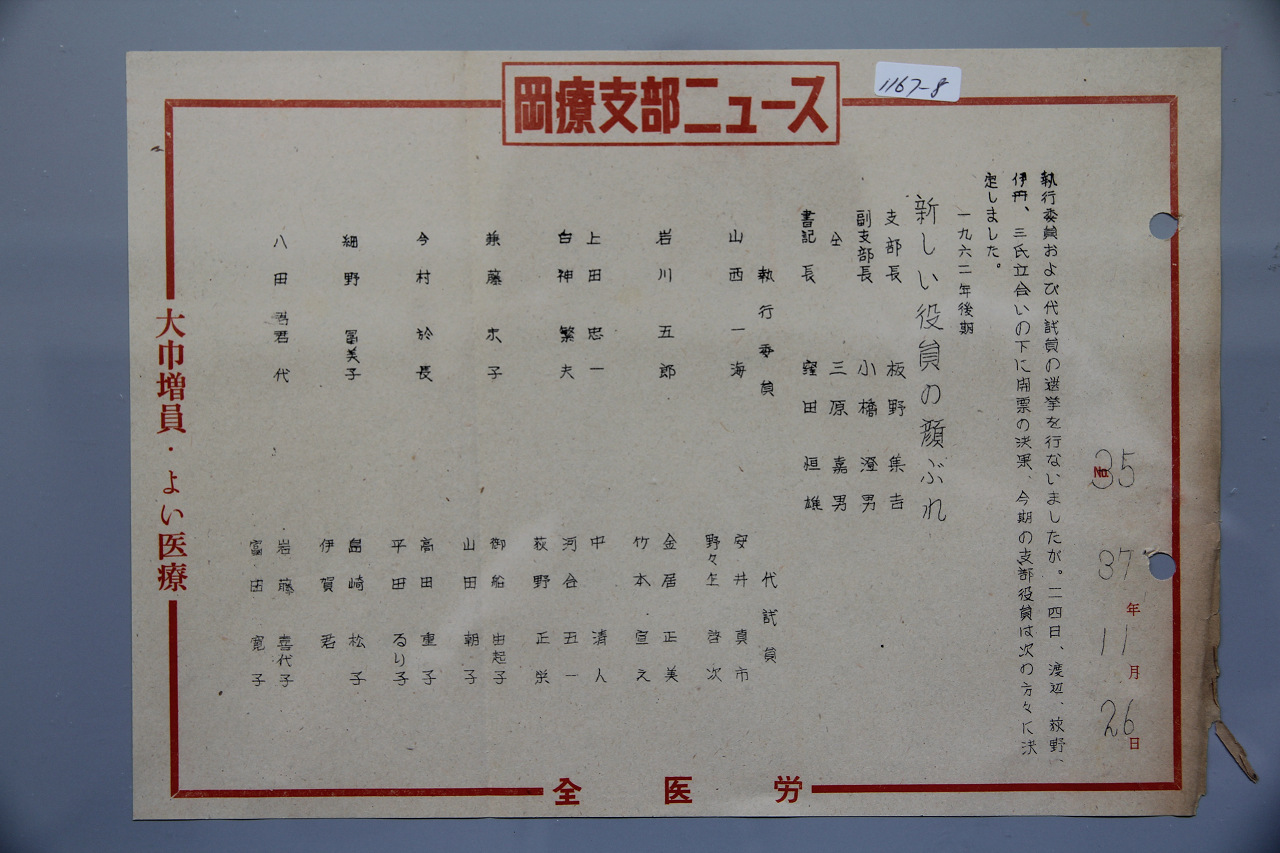 岡療支部ニュース
1167-8
35
37年11月26日
執行委員および代試員の選挙を行ないましたが。二四日、渡辺、荻野、
伊丹、三氏立会いの下に開票の決果、今期の支部役員は次の方々に決
定しました。
一九六二年後期
新しい役員の顔ぶれ
支部長 板野集吉
副支部長 小橋澄男
仝 三原嘉男
書記長 窪田恒雄
執行委員
山西一海
岩川五郎
上田忠一
白神繁夫
兼藤末子
今村於長
細野冨美子
八田君代
代試員
安井真市
野々生啓次
金居正美
竹本宣え
中清人
河合五一
荻野正栄
御船由起子
山田朝子
高田重子
平田るり子
島崎松子
伊賀君
岩藤喜代子
富田寛子
大巾増員・よい医療
全医労